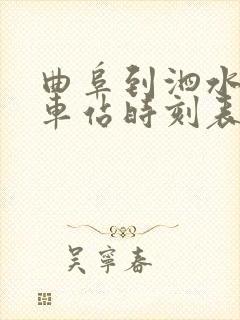 曲阜到泗水
車佔時刻表
吴寧春